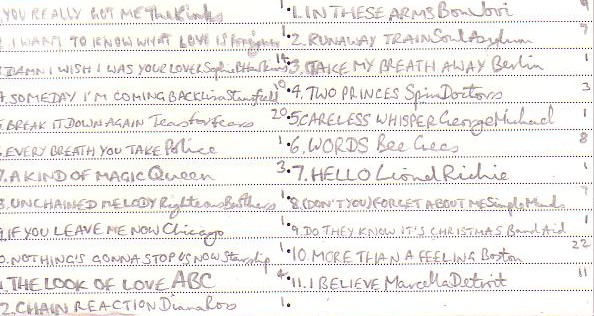 .YOU REALLY GOT ME The Kinks 1.
. I WANT TO KNOW WHAT LOVE IS Foreigner 1.
3.DAMN I WISH I WAS YOUR LOVER Sophie B Hawkins 14.
4.SOMEDAY I'M COMING BACK Lisa Stansfield 10.
5.BREAK IT DOWN AGAIN Tears for Fears 20.
6.EVERY BREATH YOU TAKE Police 1.
7.A KIND OF MAGIC Queen 3.
8.UNCHAINED MELODY Righteous Brothers 1.
9.IF YOU LEAVE ME NOW Chicago 1.
0.NOTHING'S GONNA STOP US NOW Starship 1.
1.THE LOOK OF LOVE ABC 4.
2.CHAIN REACTION Diana Ross 1.
1.IN THESE ARMS Bon Jovi 9
2.RUNAWAY TRAIN Soul Asylum 7
3.TAKE MY BREATH AWAY Berlin 1
4.TWO PRINCES Spin Doctors 3
5.CARELESS WHISPER George Michael 1
6.WORDS Bee Gees 8
7.HELLO Lionel Richie 1
8.(DON'T YOU) FORGET ABOUT ME Simple Minds 7
9.DO THEY KNOW IT'S CHRISTMAS Band Aid 1
10.MORE THAN A FEELING Boston 22
11.I BELIEVE Marcella Detroit 11